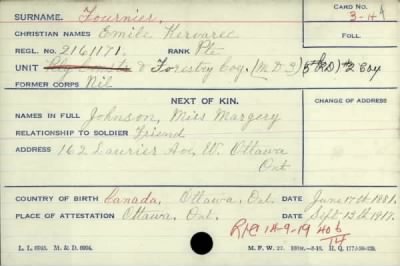 CARD NO.
SURNAME. Fournier, 3-H
CHRISTIAN NAMES Emile Kervarec FOLL.
REGL. NO. 2161171. RANK Pte
UNIT & Forestry Coy. (M.D.3) #2 Coy
FORMER CORPS Nil
NEXT OF KIN. CHANGE OF ADDRESS
NAMES IN FULL Johnson, Miss Margery
RELATIONSHIP TO SOLDIER Friend
ADDRESS 162 Laurier Ave, W. Ottawa
Ont
COUNTRY OF BIRTH Canada, Ottawa, Ont. DATE June 17th 1881.
PLACE OF ATTESTATION Ottawa, Ont. DATE Sept 13th 1917.
14-9-19 406
14
L. L. 6993. M. & D. 6994. M. F. W. 22.